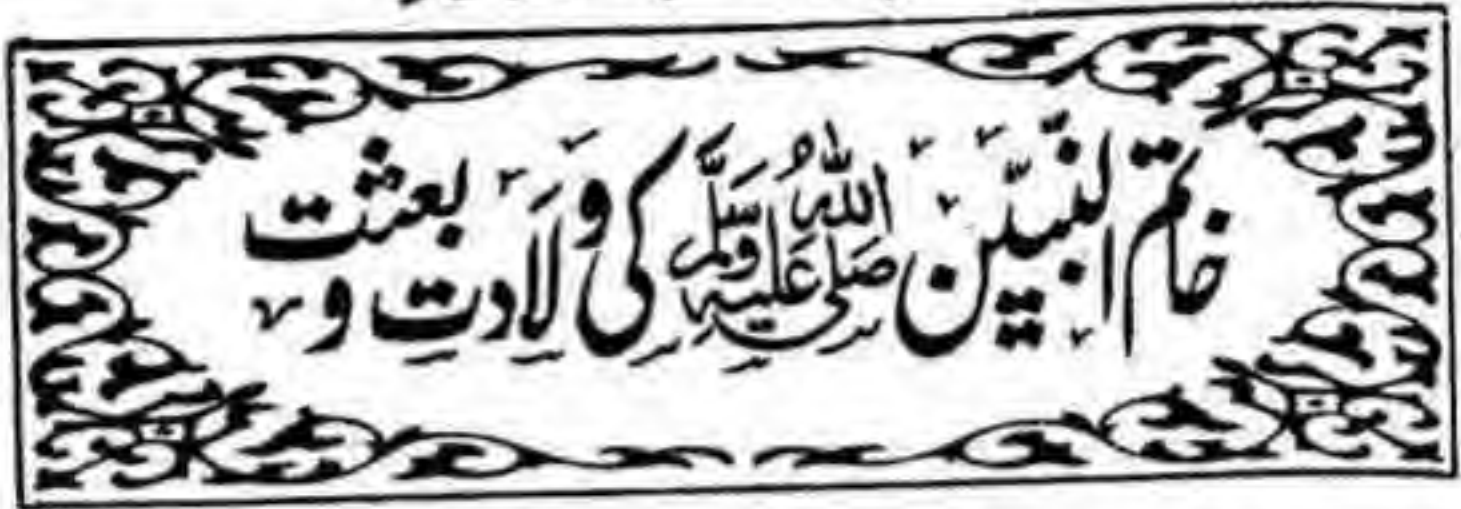 خاتم النبیّین صلی اللہ علیہ وسلم کی ولادت و بعثت